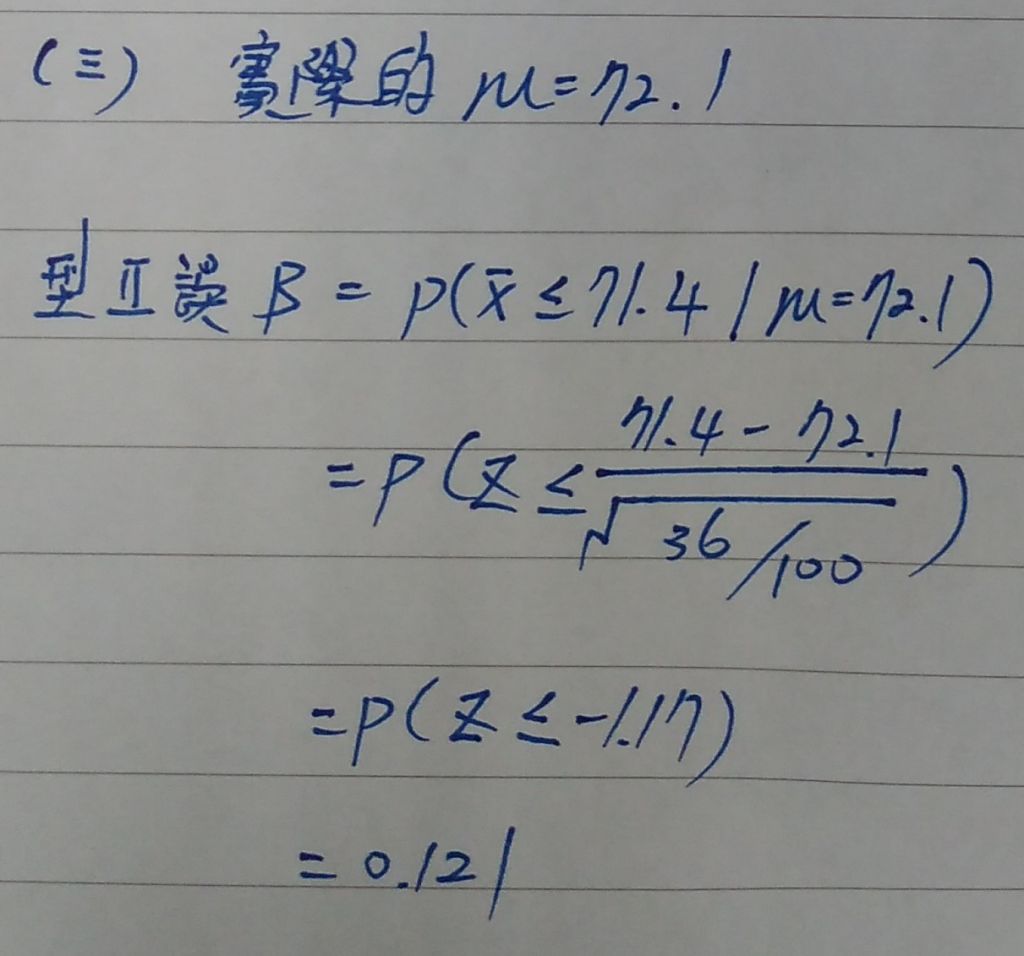 (三) 實際的 μ=72.1
型Ⅱ誤 β = P(x̄ ≤ 71.4 | μ=72.1)
= P(Z ≤ (71.4 - 72.1) / √(36/100))
= P(Z ≤ -1.17)
= 0.121